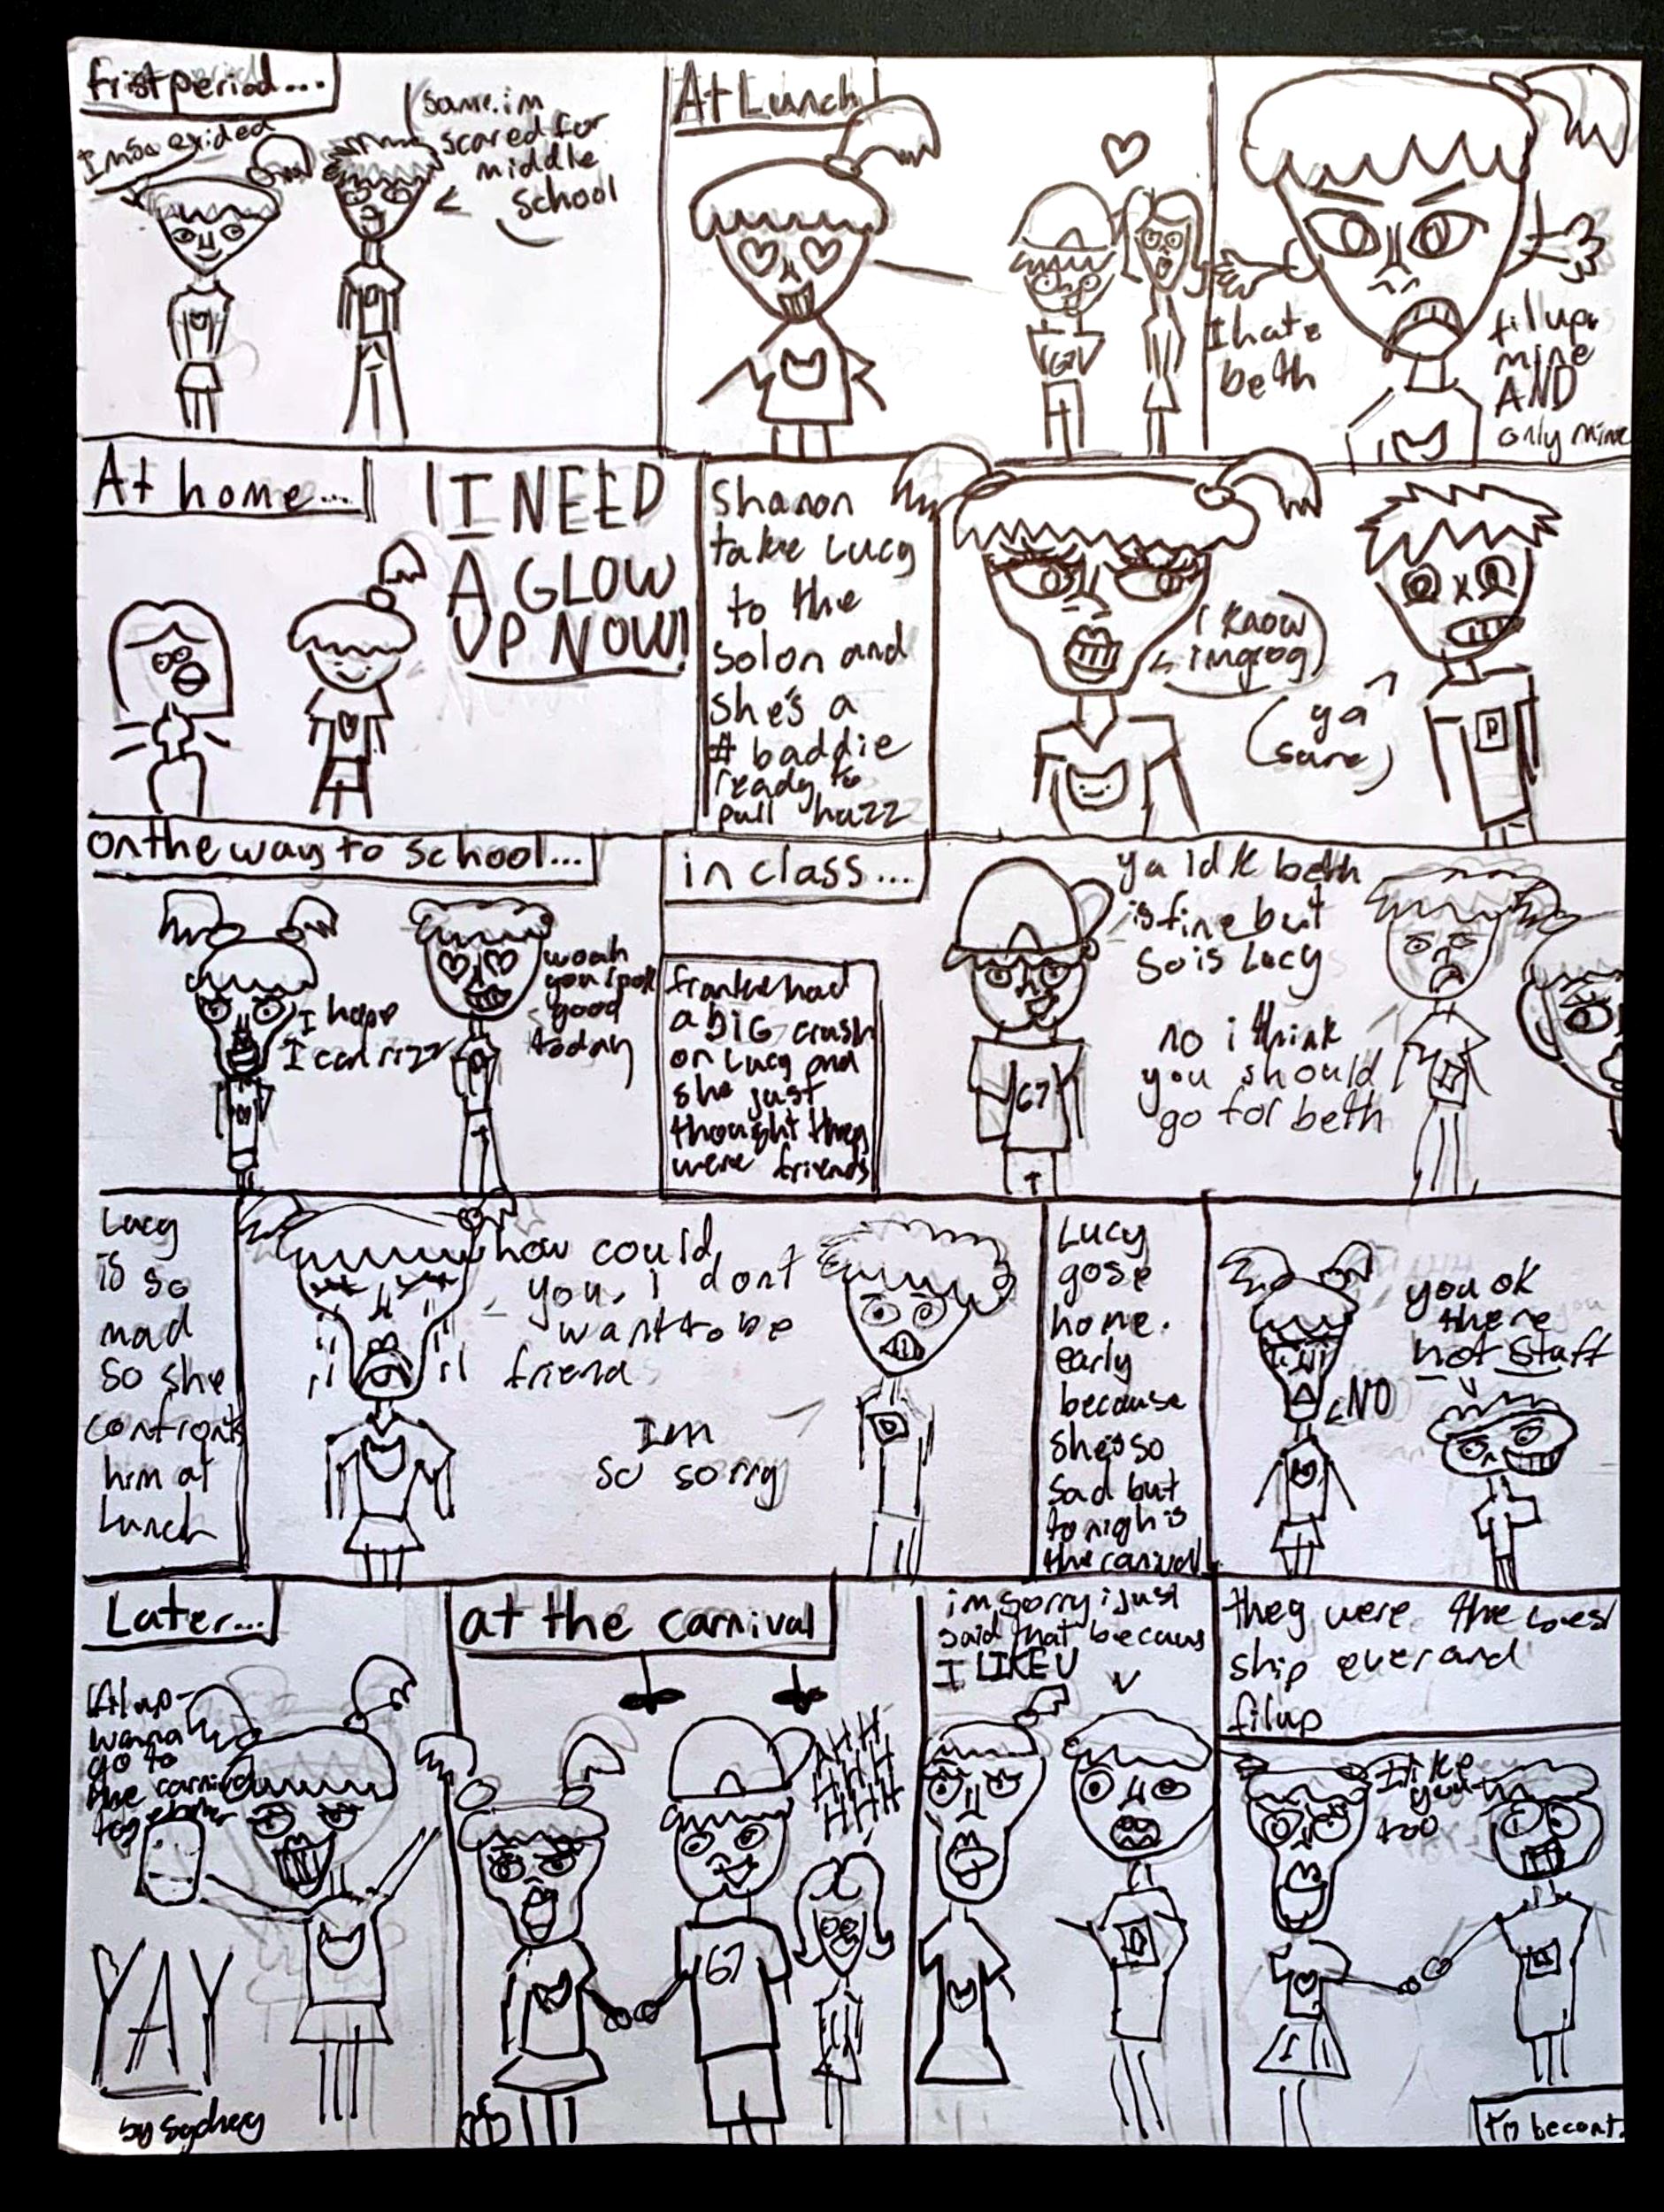 frist period...
I m so exided
same. im
scared for
middle
school
At Lunch
67
I hate
beth
filup
mine
AND
only mine
At home...
I NEED
A GLOW
UP NOW!
Sharon
take Lucy
to the
solon and
she's a
# baddie
ready to
pull huzz
I know
im gog
ya
sure
D
on the way to school...
I hope
I can rizz
woah
you look
good
today
in class...
frankie had
a BIG crush
on Lucy and
she just
thought they
were friends
67
ya idk beth
is fine but
so is Lucy
no i think
you should
go for beth
Lucy
is so
mad
so she
confronts
him at
Lunch
how could
you, i dont
want to be
friend
Im
so sorry
D
Lucy
gose
home.
early
because
she's so
sad but
tonigh is
the carival
you ok
there
hot staff
NO
Later...
filup
wanna
go to
the carnival
together
YAY
by Sydney
at the carnival
HHH
HHH
HHH
67
im sorry i just
said that becaus
I LIKE U
D
they were the best
ship ever and
filup
I like
you
too
T'm be cont.